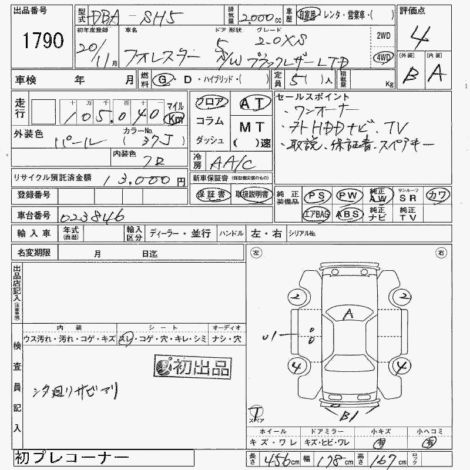 出品番号 型式 DBA - SH5 排気量 2000 cc 車歴 自家用・レンタ・営業車・( ) 評価点
1790 初年度登録 車名 ドア 形状 グレード 4
20/11月 フォレスター 5 /W 2.0XS ブラックレザーLTD 2WD 4WD
車検 年 月 燃料 G D・ハイブリッド・( ) 定員 5( )人 積載量 Kg B A
走行 十万 万 千 百 十 マイル
105,040 Km
フロア AT
コラム MT
ダッシュ ( )速
セールスポイント
・ワンオーナー
・HDDナビ、TV
・取説、保証書、スペアキー
外装色 パール カラーNo. (37J)
内装色 クロ 冷房 AA/C
リサイクル預託済金額 13,000円 新車保証書 保証書 取扱説明書
登録番号
純正装備品 PS PW 純正AW サンルーフSR カワ
エアBAG ABS 純正ナビ 純正TV
車台番号 023846
輸入車 年式 輸入区分 ディーラー・並行 ハンドル 左・右 シリアルNo.
名変期限 月 日迄
出品店記入
左 右
2 2
A
U1
4 4
B1
検査員記入
内装 シート オーディオ
ウス汚れ・汚れ・コゲ・キズ スレ・コゲ・穴・キレ・シミ ナシ・穴
初出品
下廻りサビアリ
ホイール ドアミラー 小キズ 小ヘコミ
キズ・ワレ キズ・ヒビ・ワレ 有 有
初プレコーナー 長さ 456cm 幅 178cm 高さ 167cm